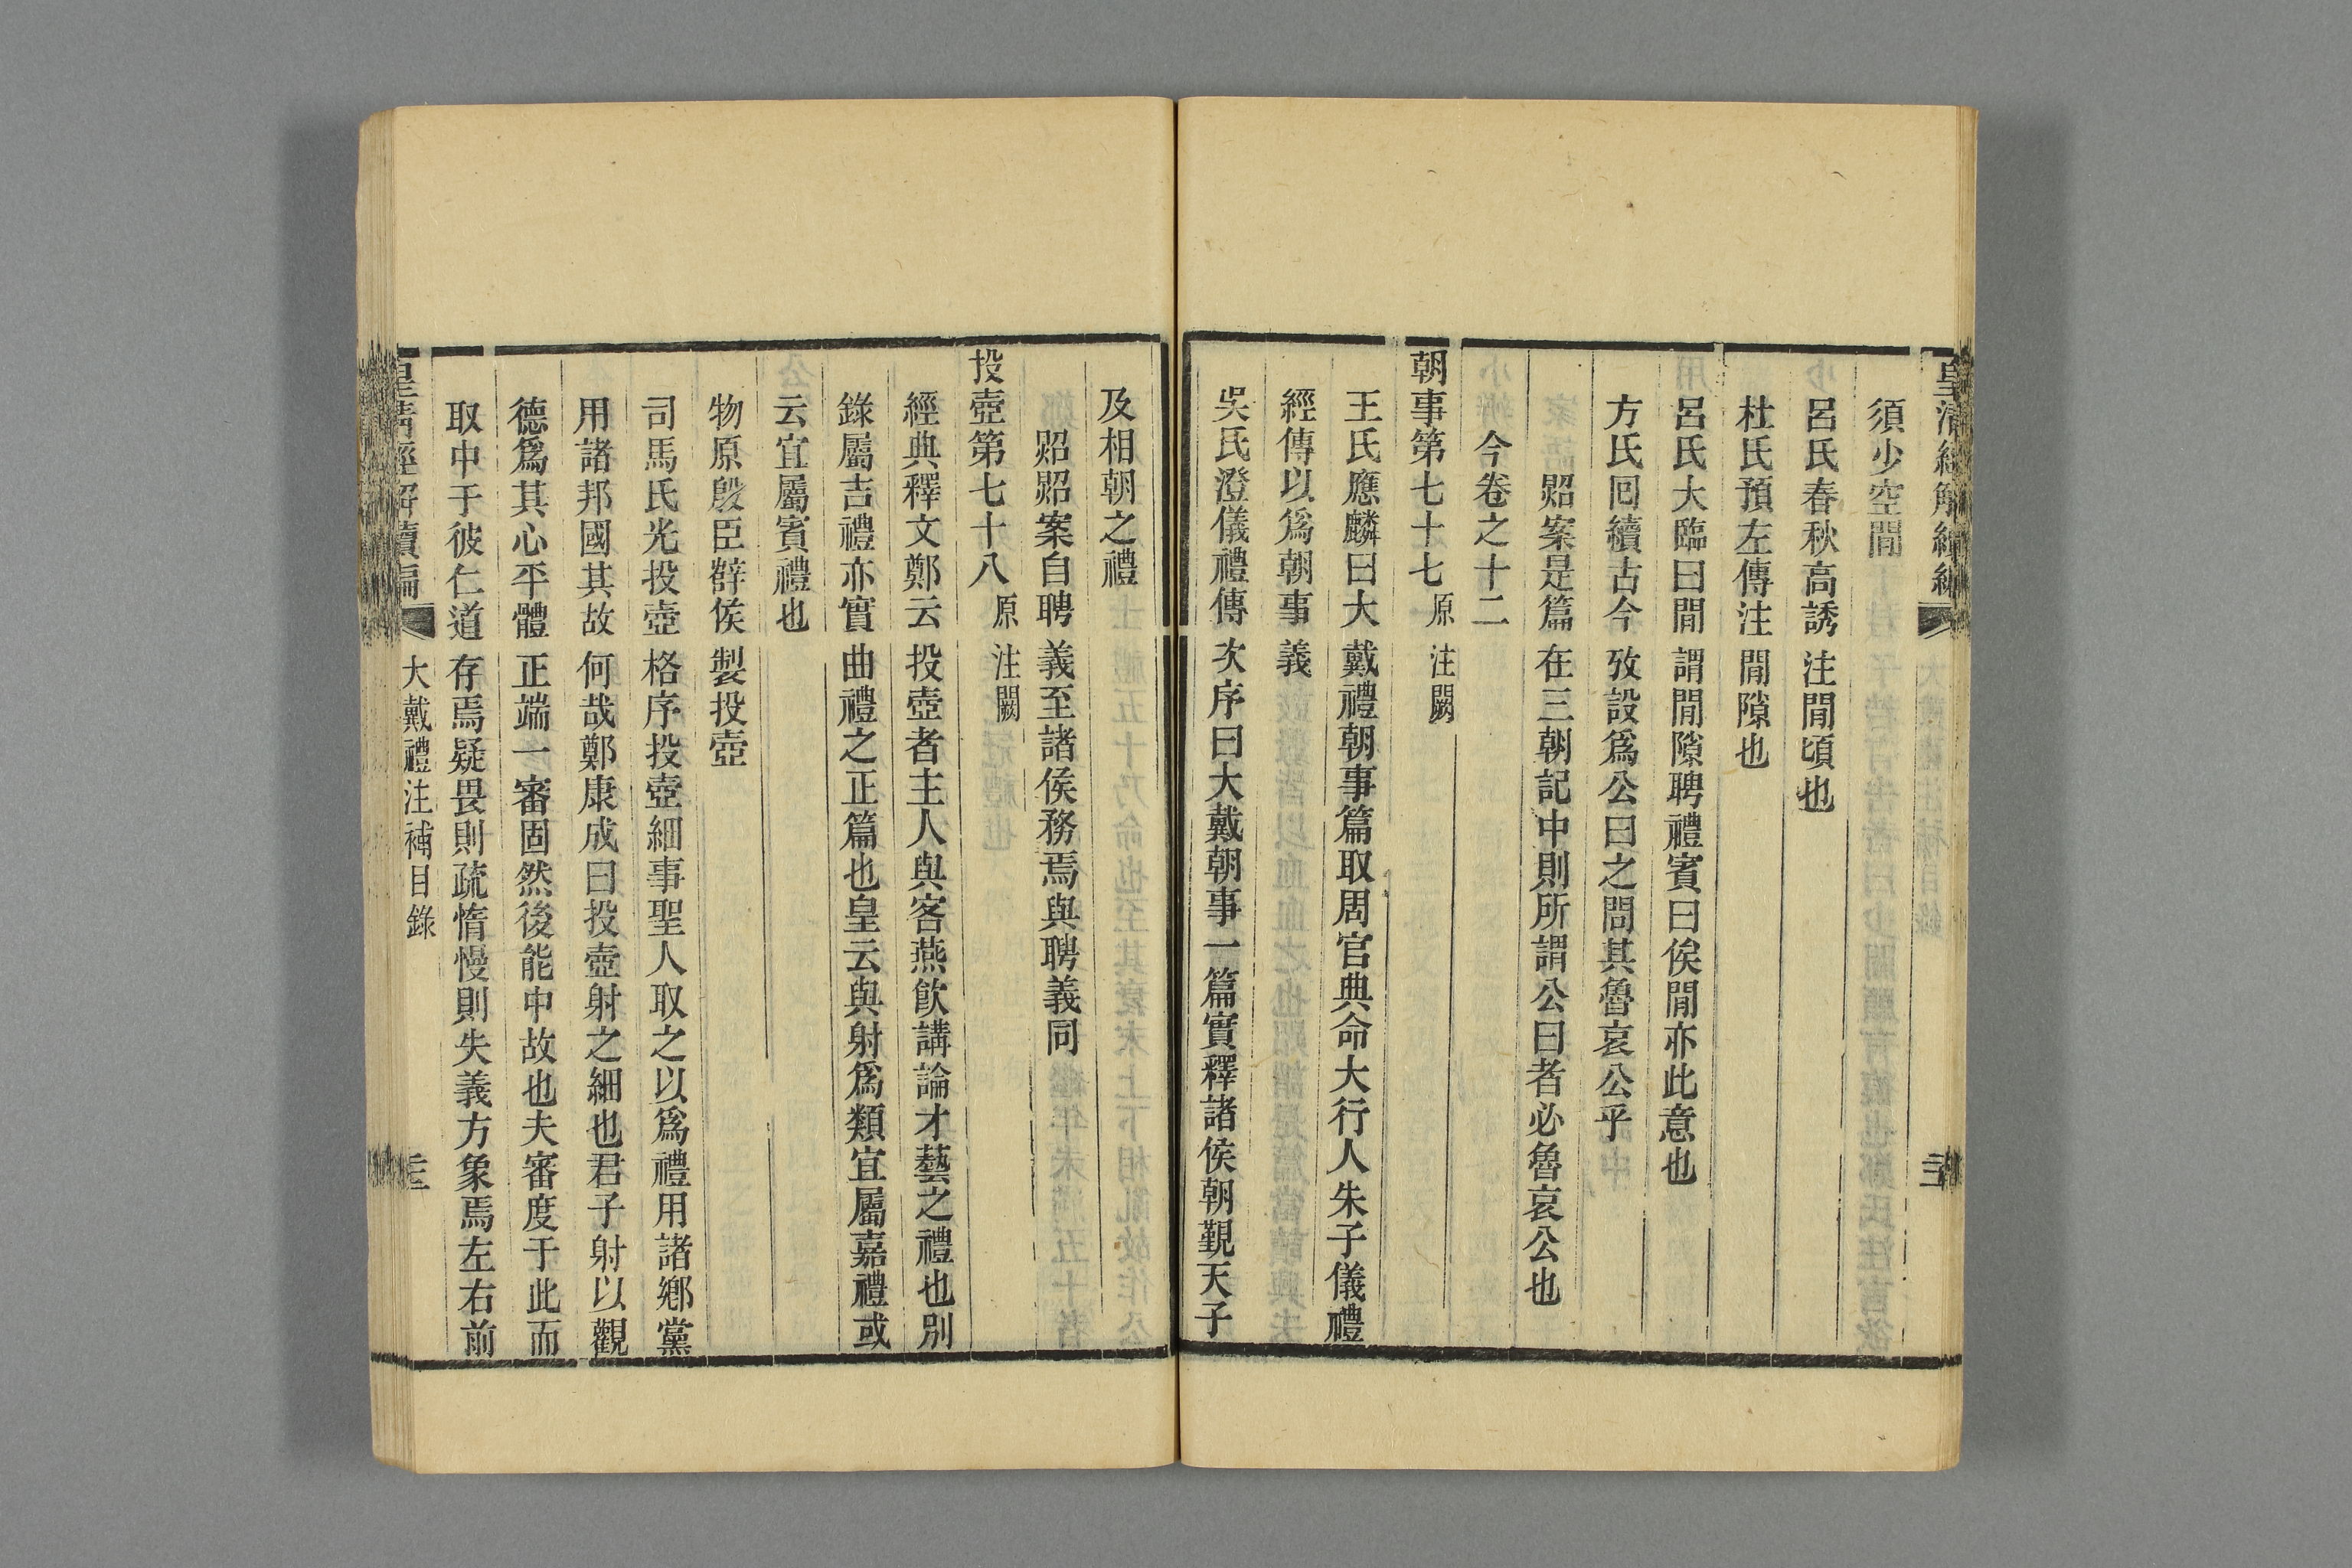 皇清經解續編
須少空閒
呂氏春秋高誘注閒頃也
杜氏預左傳注閒隙也
呂氏大臨曰閒謂閒隙聘禮賓曰俟閒亦此意也
方氏回續古今攷設爲公曰之問其魯哀公乎
昭案是篇在三朝記中則所謂公曰者必魯哀公也
今卷之十二
朝事第七十七原注闕
王氏應麟曰大戴禮朝事篇取周官典命大行人朱子儀禮
經傳以爲朝事義
吳氏澄儀禮傳次序曰大戴朝事一篇實釋諸侯朝覲天子
及相朝之禮
昭昭案自聘義至諸侯務焉與聘義同
投壺第七十八原注闕
經典釋文鄭云投壺者主人與客燕飮講論才藝之禮也別
錄屬吉禮亦實曲禮之正篇也皇云與射爲類宜屬嘉禮或
云宜屬賓禮也
物原殷臣辥侯製投壺
司馬氏光投壺格序投壺細事聖人取之以爲禮用諸鄉黨
用諸邦國其故何哉鄭康成曰投壺射之細也君子射以觀
德爲其心平體正端一審固然後能中故也夫審度于此而
取中于彼仁道存焉疑畏則疏惰慢則失義方象焉左右前
皇清經解續編 大戴禮注補目錄